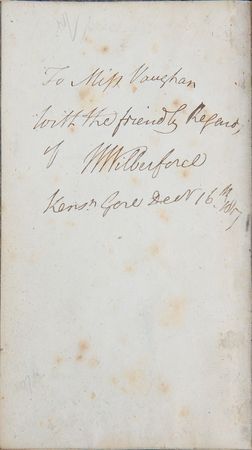 To Miss Vaughan
with the friendly Regards
of WWilberforce
Kensn Gore Decr 16.th 1817